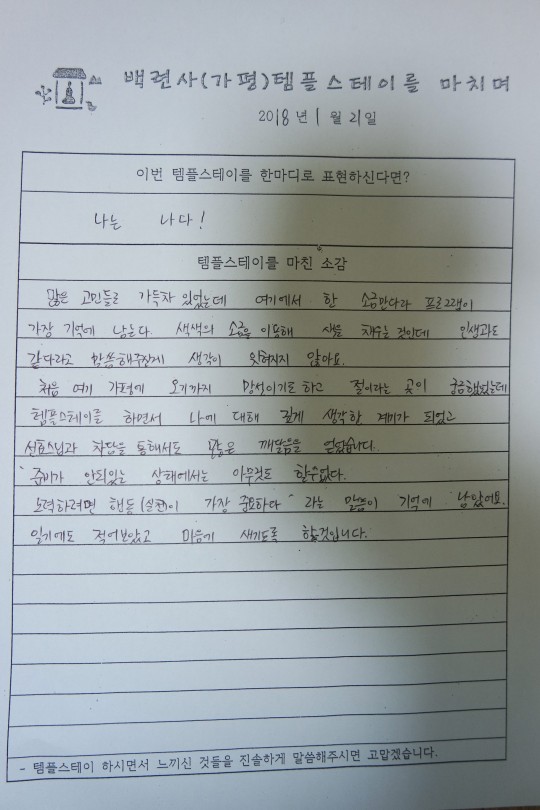 백련사(가평)템플스테이를 마치며
2018년 1월 21일
이번 템플스테이를 한마디로 표현하신다면?
나는 나다!
템플스테이를 마친 소감
많은 고민들로 가득차 있었는데 여기에서 한 소금만다라 프로그램이
가장 기억에 남는다. 색색의 소금을 이용해 색을 채우는 것인데 인생과도
같다라고 말씀해주신게 생각이 잊혀지지 않아요.
처음 여기 가평에 오기까지 망설이기도 하고 절이라는 곳이 궁금했었는데
템플스테이를 하면서 나에 대해 깊게 생각한 계기가 되었고
선효스님과 차담을 통해서도 많은 깨달음을 얻었습니다.
"준비가 안되있는 상태에서는 아무것도 할수없다.
노력하려면 행동(실천)이 가장 중요하다" 라는 말씀이 기억에 남았어요.
일기에도 적어보았고 마음에 새기도록 할것입니다.
- 템플스테이 하시면서 느끼신 것들을 진솔하게 말씀해주시면 고맙겠습니다.